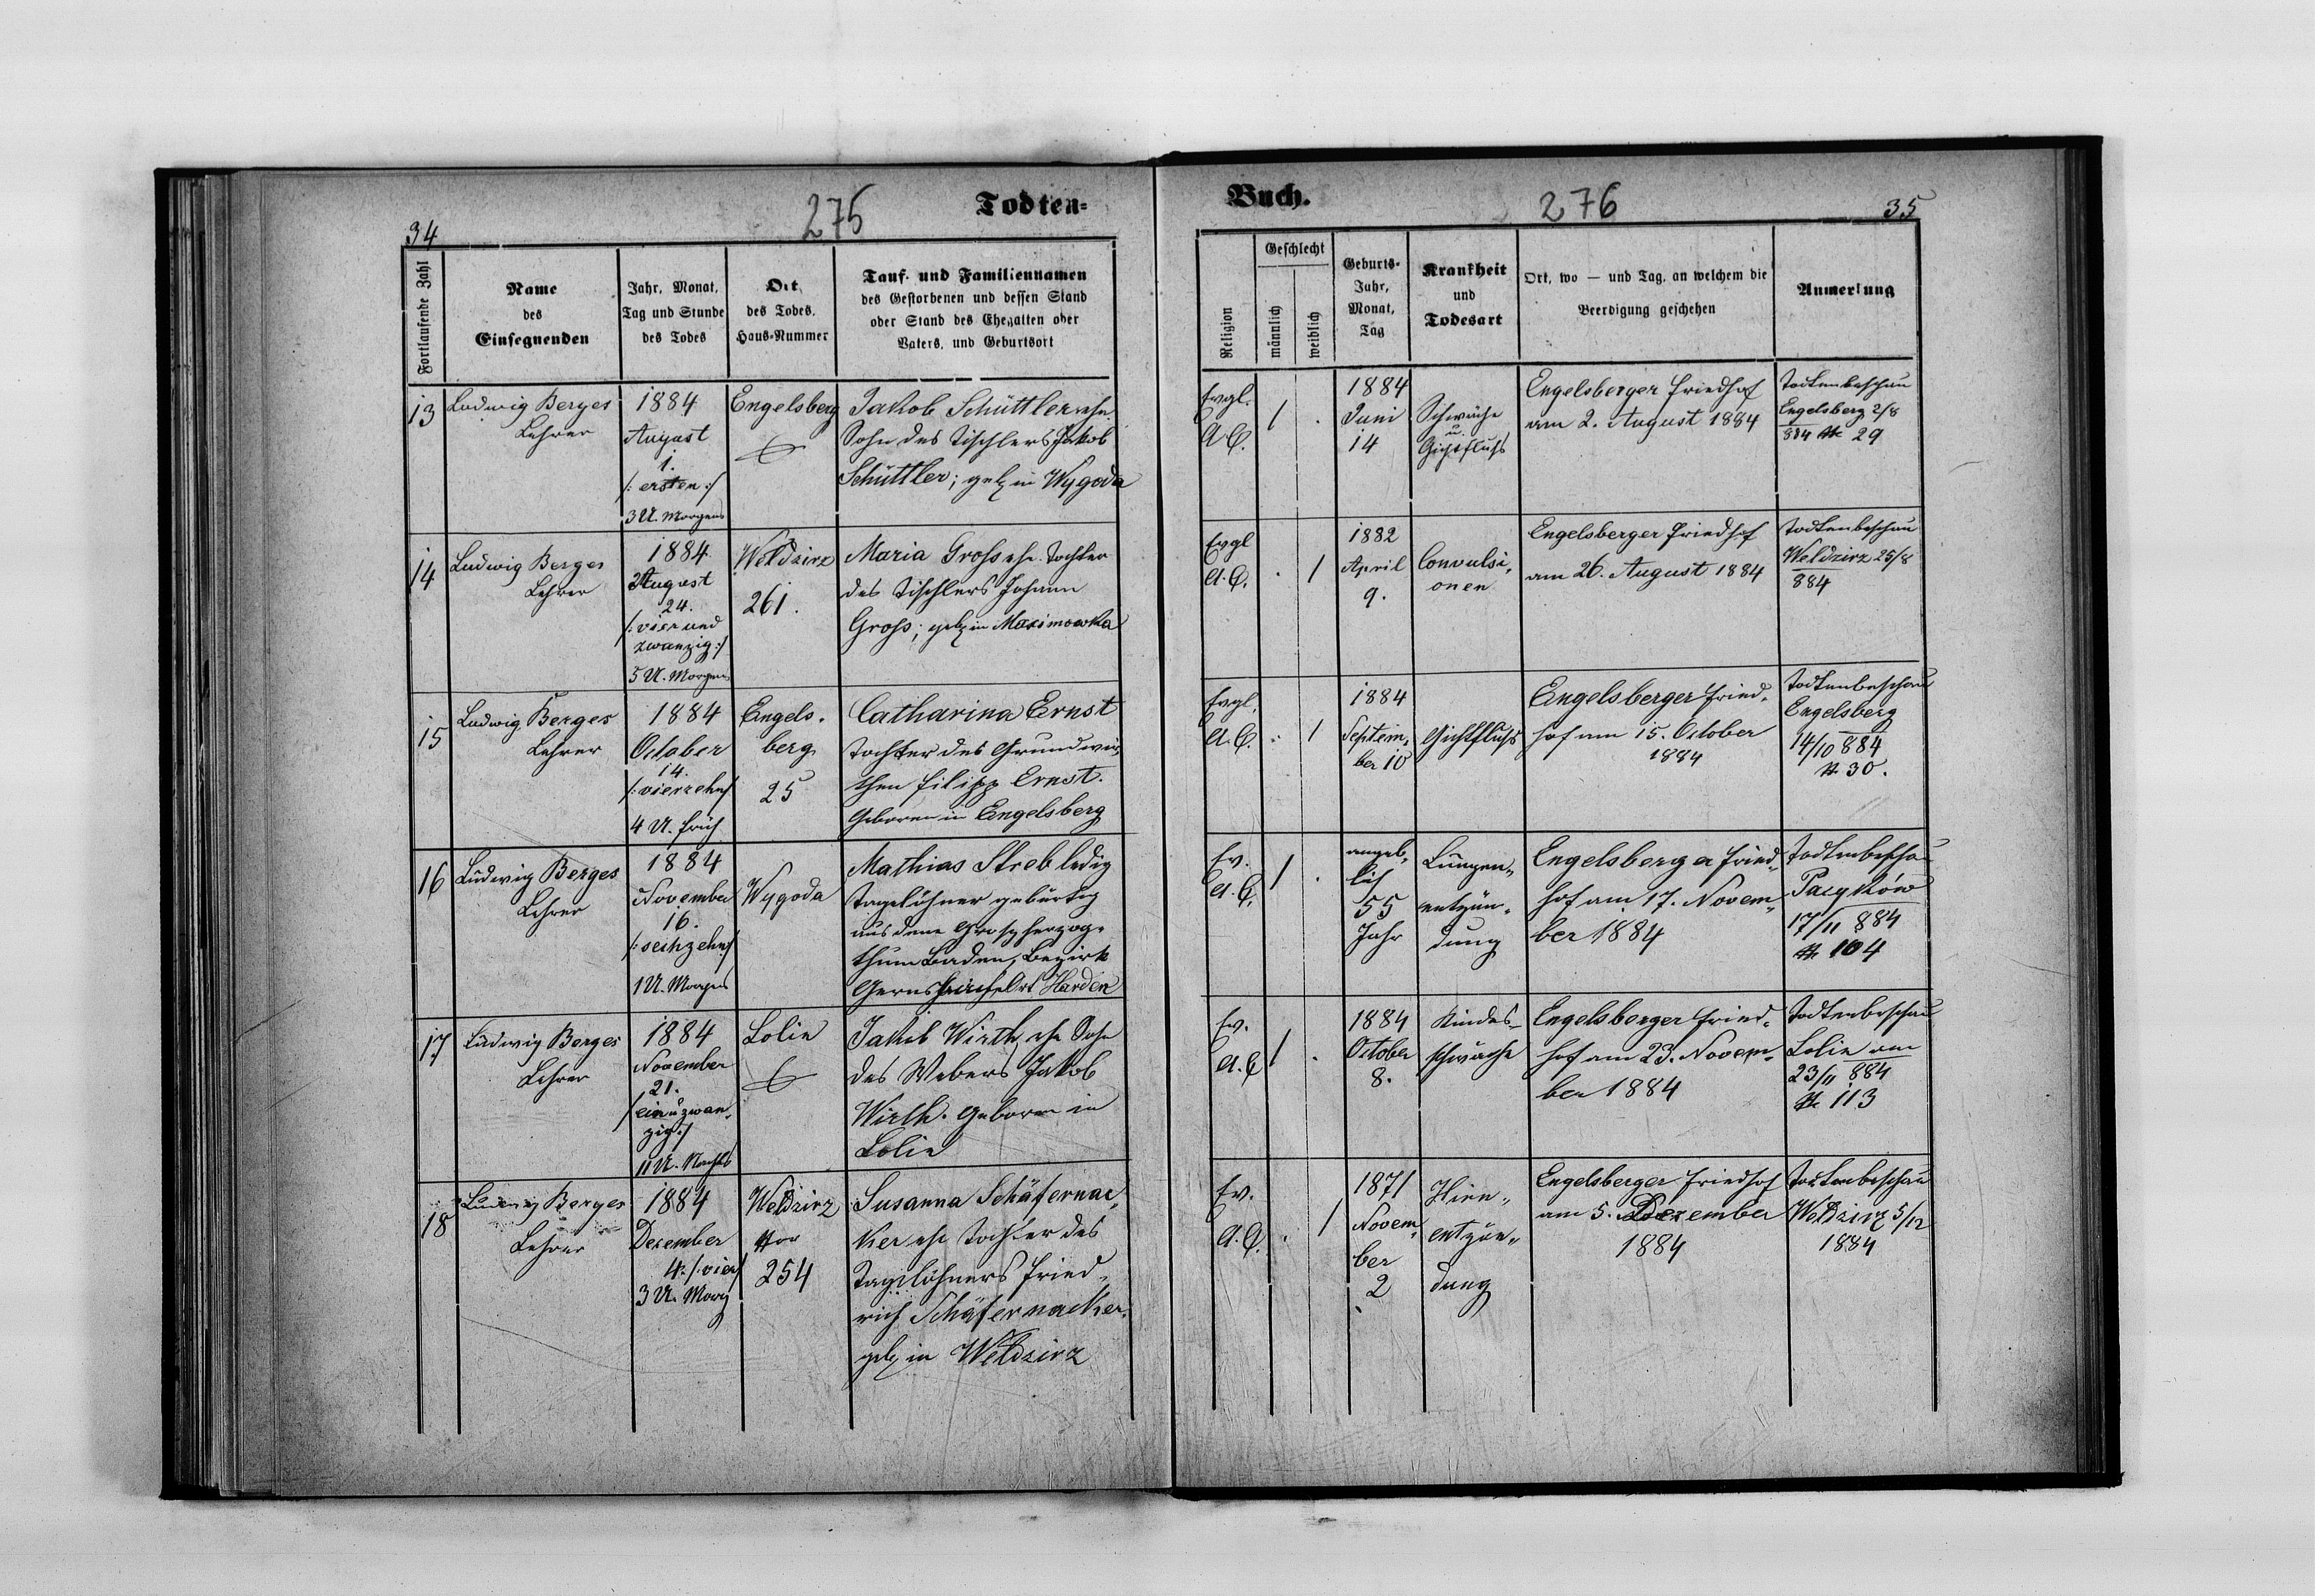 275
Todten=
34
Fortlaufende Zahl
Name
des
Einsegnenden
Jahr, Monat,
Tag und Stunde
des Todes
Ort
des Todes.
Haus=Nummer
Tauf- und Familiennamen
des Gestorbenen und dessen Stand
oder Stand des Ehegatten oder
Vaters, und Geburtsort
13
Ludwig Berges
Lehrer
1884
August
1.
/: ersten :/
3 U. Morgens
Engelsberg
Jakob Schüttler, ehe.
Sohn des Tischlers Jakob
Schüttler; geb. in Wygoda
14
Ludwig Berges
Lehrer
1884.
August
24.
/: vier und
zwanzig :/
5 U. Morgens
Weldzirz
261.
Maria Gross ehe. Tochter
des Tischlers Johann
Gross; geb. in Maximowka
15
Ludwig Berges
Lehrer
1884
October
14.
/: vierzehn/
4 U. früh
Engels-
berg
25
Catharina Ernst
Tochter des Grundwir-
then Filipp Ernst.
Geboren in Engelsberg
16
Ludwig Berges
Lehrer
1884
November
16.
/: sechzehn :/
1 U. Morgens
Wygoda
Mathias Streb ledig
Tagelöhner gebürtig
aus dem Grosherzog-
thum Baden, Bezirk
Harden
17
Ludwig Berges
Lehrer
1884
November
21.
/ein u zwan-
zig :/
11 U. Nachts
Lolin
Jakob Wirth, ehe Sohn
des Webers Jakob
Wirth. Geboren in
Lolin
18
Ludwig Berges
Lehrer
1884
Dezember
4. /: vier/
3 U. Morg
Weldzirz
Nro
254
Susanna Schäfernac-
ker ehe Tochter des
Taglöhners Fried-
rich Schäfernacker.
geb. in Weldzirz
Buch.
276
35
Religion
Geschlecht
männlich
weiblich
Geburts-
Jahr,
Monat,
Tag
Krankheit
und
Todesart
Ort, wo — und Tag, an welchem die
Beerdigung geschehen
Anmerkung
Evgl.
A. C.
1
.
1884
Juni
14
Schwäche
u.
Gichtfluss
Engelsberger Friedhof
am 2. August 1884
Todtenbeschau
Engelsberg 2/8
884 N 29
Evgl
A. C.
.
1
1882
April
9.
Convulsi-
onen
Engelsberger Friedhof
am 26. August 1884
Todtenbeschau
Weldzirz 25/8
884
Evgl.
A. C.
.
1
1884
Septem-
ber 10
Gichtfluss
Engelsberger Fried-
hof am 15. October
1884
Todtenbeschau
Engelsberg
14/10 884
N 30.
Ev.
A. C.
1
.
angeb-
lich
55
Jahr
Lungen-
entzün-
dung
Engelsberger Fried-
hof am 17. Novem-
ber 1884
Todtenbeschau
Pacyków
17/11 884
N 104
Ev.
A. C
1
.
1884
October
8.
Kindes-
schwäche
Engelsberger Fried-
hof am 23. Novem-
ber 1884
Todtenbeschau
Lolin am
23/11 884
N 113
Ev.
A. C.
.
1
1871
Novem-
ber
2
Hirn-
entzün-
dung
Engelsberger Friedhof
am 5. Dezember
1884
Todtenbeschau
Weldzirz 5/12
1884